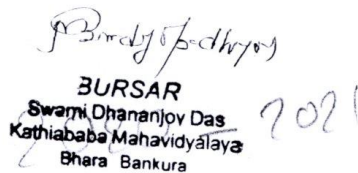 Bandyopadhyay
BURSAR
Swami Dhananjoy Das
Kathiababa Mahavidyalaya
Bhara Bankura
2021